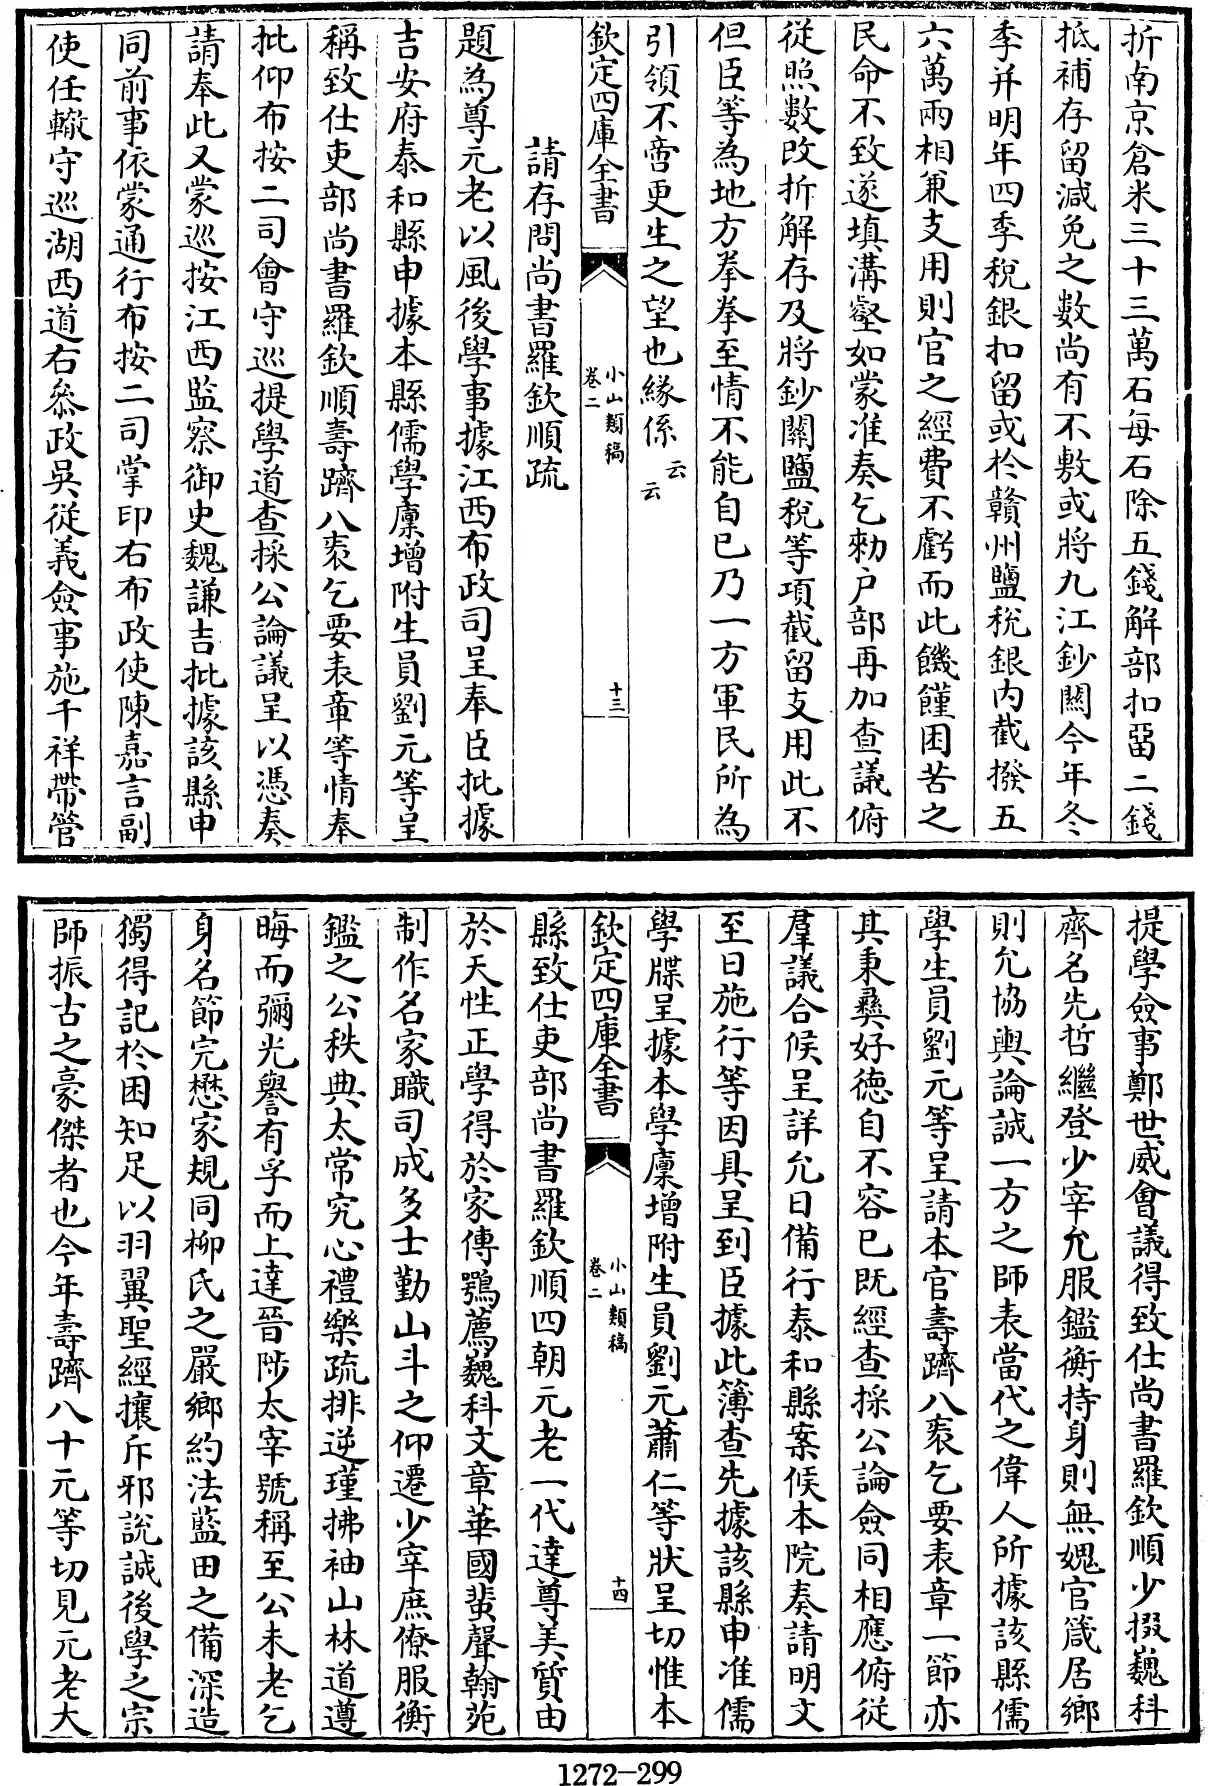 折南京倉米三十三萬石每石除五錢解部扣畱二錢
抵補存留減免之數尚有不敷或將九江鈔關今年冬
季并明年四季稅銀扣留或於贛州鹽稅銀內截撥五
六萬兩相兼支用則官之經費不虧而此饑饉困苦之
民命不致遂填溝壑如蒙准奏乞勑户部再加查議俯
從照數改折解存及將鈔關鹽稅等項截留支用此不
但臣等為地方拳拳至情不能自已乃一方軍民所為
引領不啻更生之望也緣係云云
欽定四庫全書
小山類稿
卷二
十三
請存問尚書羅欽順疏
題為尊元老以風後學事據江西布政司呈奉臣批據
吉安府泰和縣申據本縣儒學廩增附生員劉元等呈
稱致仕吏部尚書羅欽順壽躋八袠乞要表章等情奉
批仰布按二司會守巡提學道查採公論議呈以憑奏
請奉此又蒙巡按江西監察御史魏謙吉批據該縣申
同前事依蒙通行布按二司掌印右布政使陳嘉言副
使任轍守巡湖西道右叅政吳從義僉事施千祥帶管
提學僉事鄭世威會議得致仕尚書羅欽順少掇巍科
齊名先哲繼登少宰允服鑑衡持身則無媿官箴居鄉
則允協輿論誠一方之師表當代之偉人所據該縣儒
學生員劉元等呈請本官壽躋八袠乞要表章一節亦
其秉彞好德自不容已既經查採公論僉同相應俯從
羣議合候呈詳允日備行泰和縣案候本院奏請明文
至日施行等因具呈到臣據此簿查先據該縣申准儒
學牒呈據本學廩增附生員劉元蕭仁等狀呈切惟本
欽定四庫全書
小山類稿
卷二
十四
縣致仕吏部尚書羅欽順四朝元老一代達尊美質由
於天性正學得於家傳鶚薦巍科文章華國蜚聲翰苑
制作名家職司成多士勤山斗之仰遷少宰庶僚服衡
鑑之公秩典太常究心禮樂疏排逆瑾拂袖山林道遵
晦而彌光譽有孚而上達晉陟太宰號稱至公未老乞
身名節完懋家規同柳氏之嚴鄉約法藍田之備深造
獨得記於困知足以羽翼聖經攘斥邪說誠後學之宗
師振古之豪傑者也今年壽躋八十元等切見元老大
1272-299